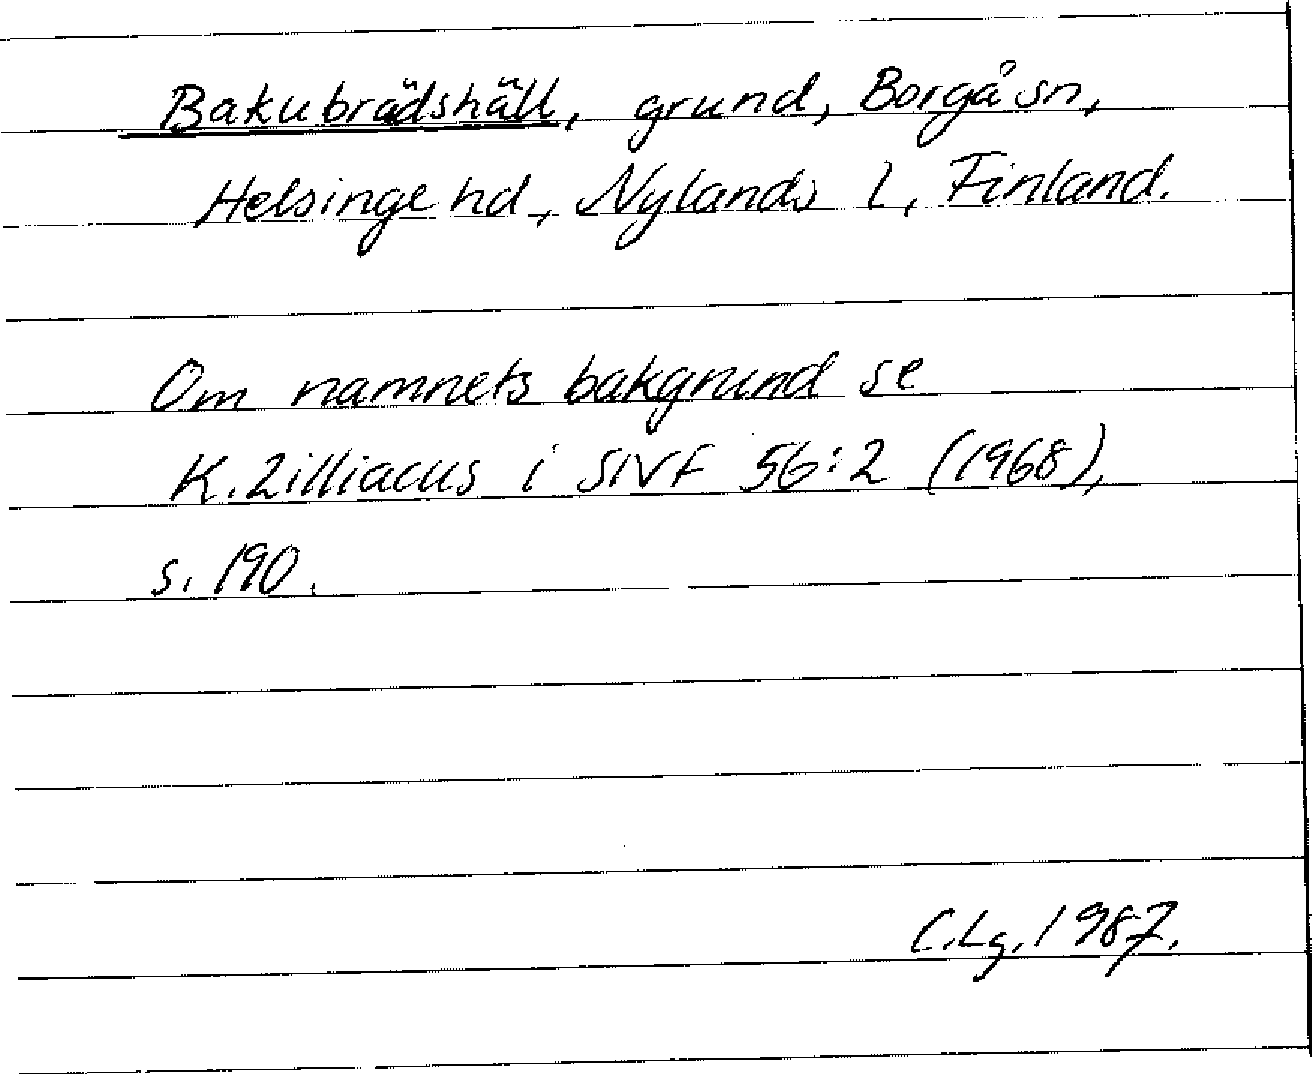 Bakubrädshäll, grund, Borgå sn,
Helsinge hd, Nylands l, Finland.
Om namnets bakgrund se
K. Zilliacus i SNF 56:2 (1968),
s. 190.
C.Lg. 1987.